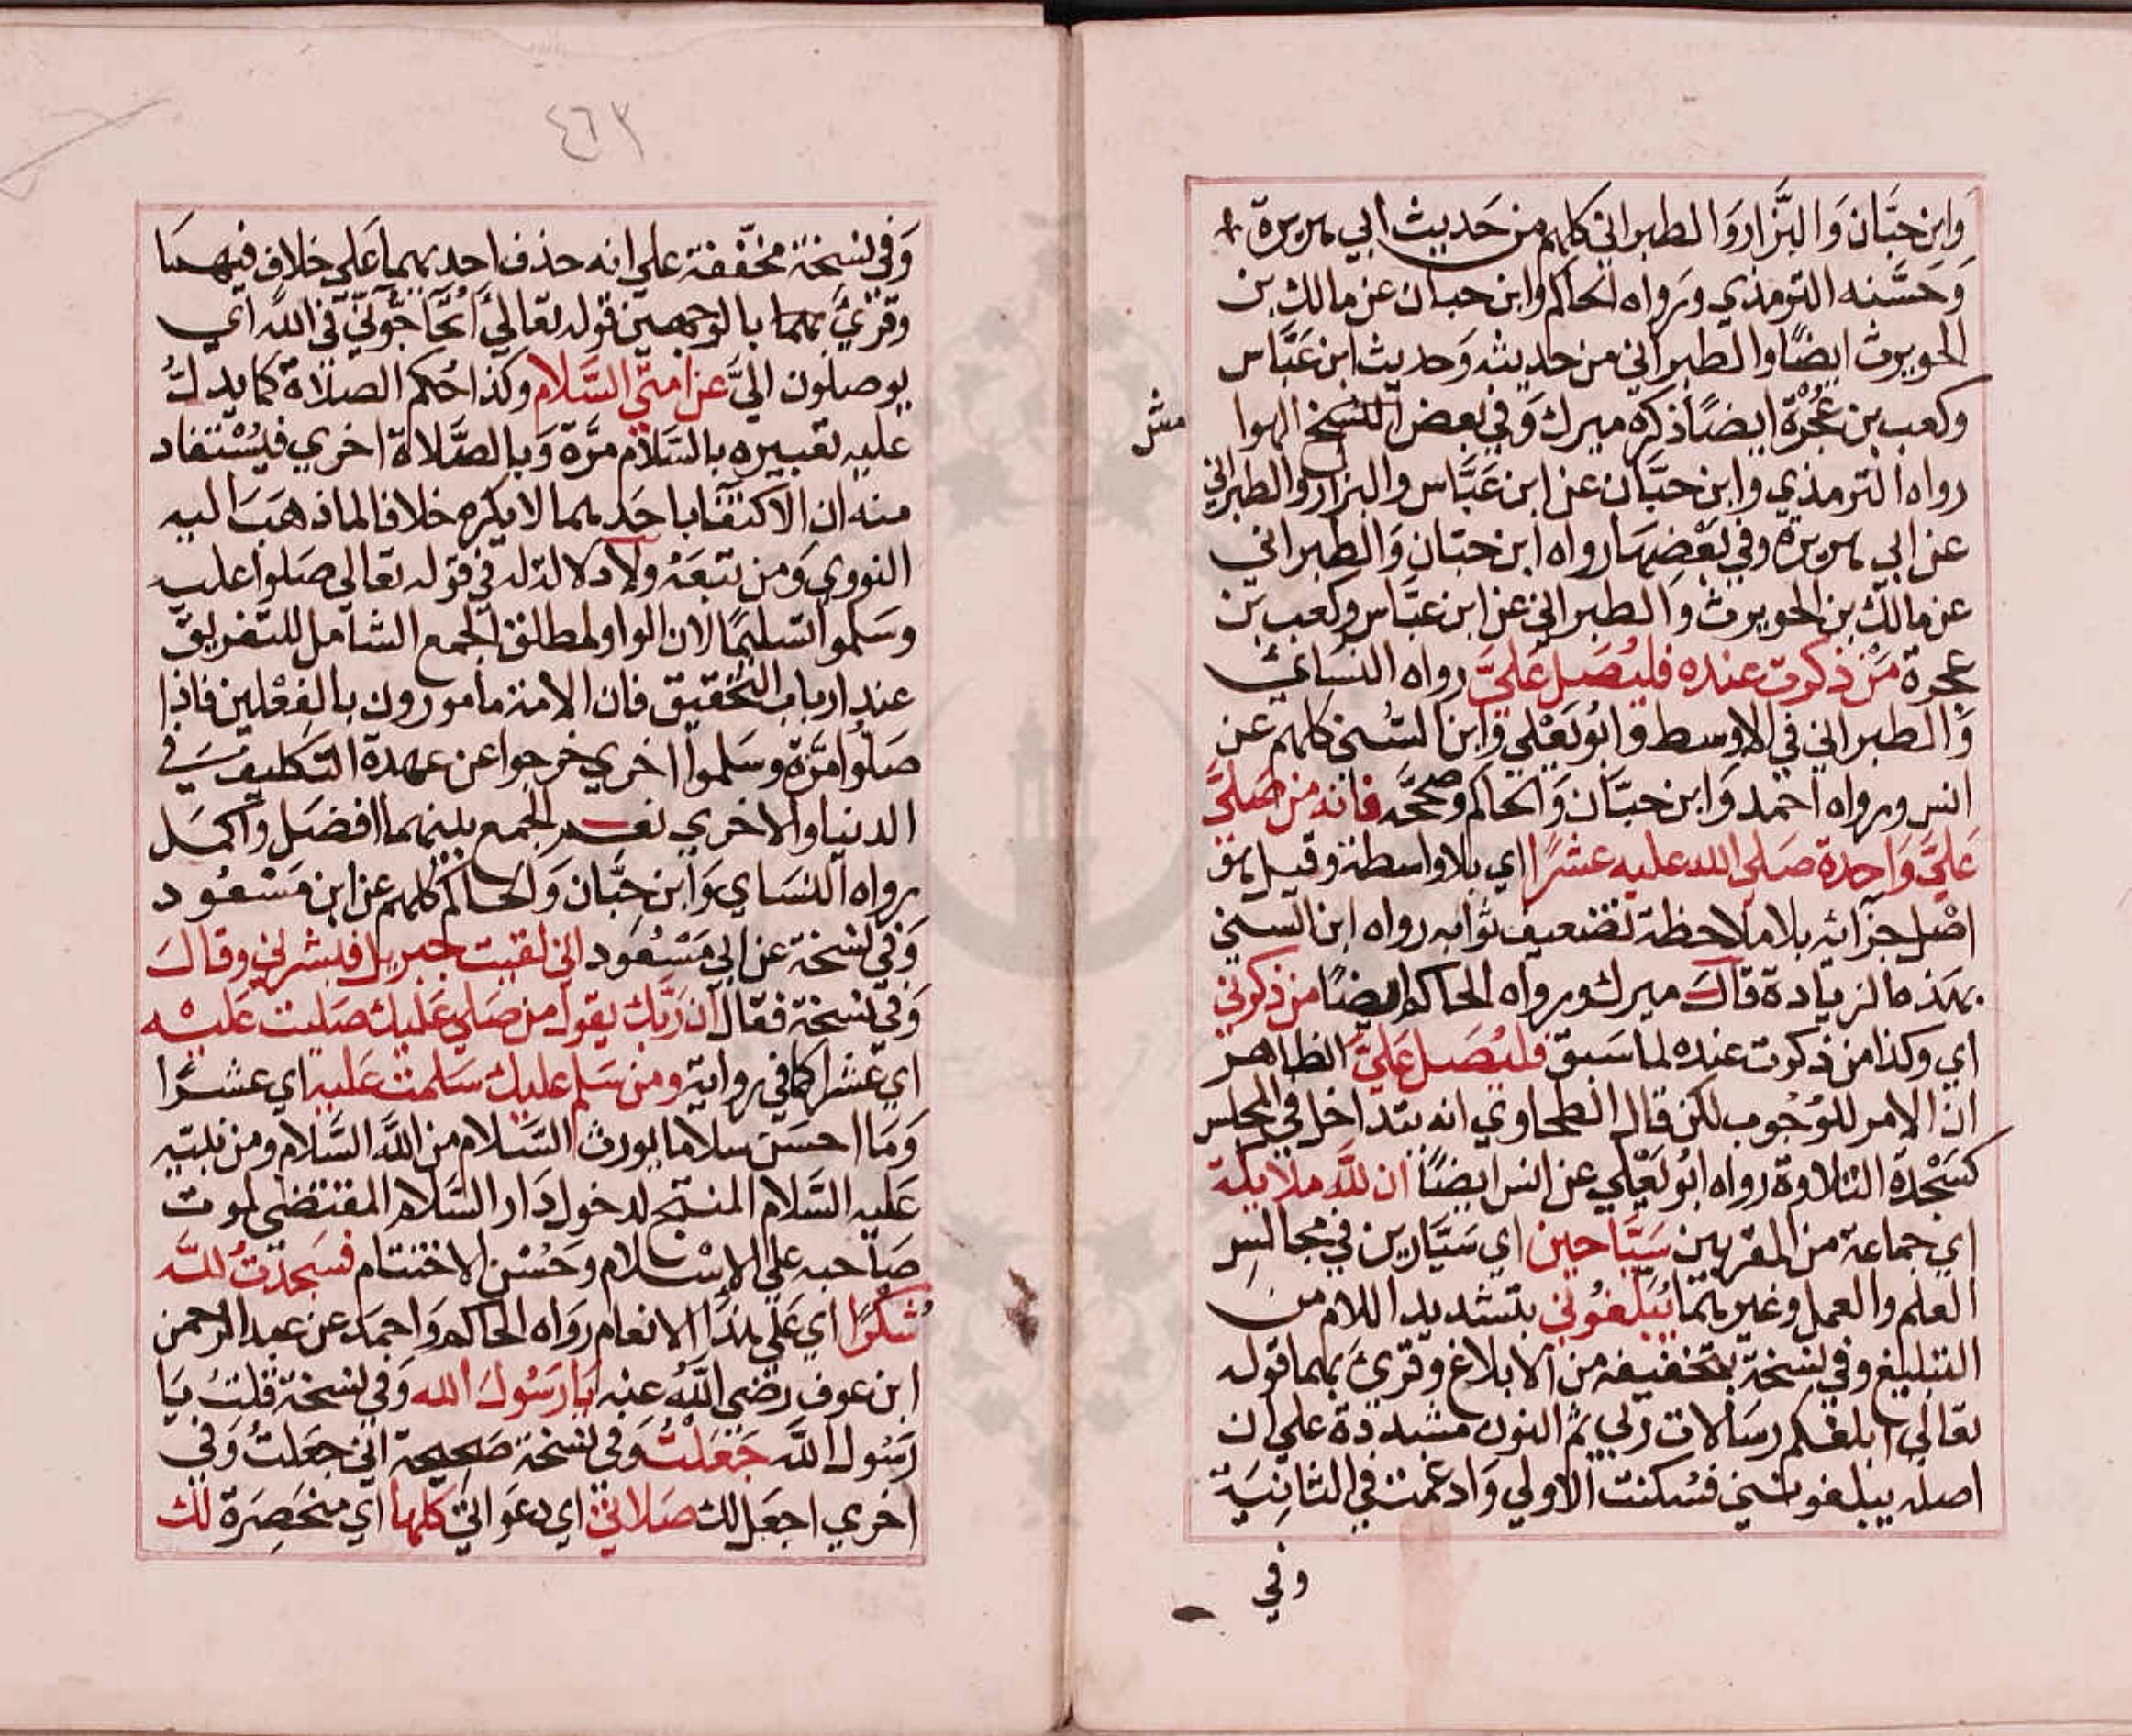 وابن حبَّان وَالبَّزار وَالطبراني كلهم من حَديث ابي هريرة
وَحسَّنه الترمذي ورواه الحاكم وابن حبان عن مالك بن
الحويرث ايضًا والطبراني من حديثه وَحديث ابن عَبَّاس
وكعب بن عُجْرة ايضًا ذكره ميرك وَفي بعض النسخ الهوا
مش
رواه الترمذي وابن حبَّان عن ابن عَبَّاس والبزار والطبراني
عن ابي هريرة وفي بَعْضِهَا رواه ابن حبَان وَالطبراني
عن مالك بن الحويرث والطبراني عن ابن عبَّاس وكعب بن
عجرة مَنْ ذكرت عنده فليُصَل عَليَّ رواه النسَائي
وَالطبراني في الاوسط وابُو يَعْلي وَابن السُني كلهم عن
انس ورواه احمد وَابن حبَّان وَالحاكم وصححَّه فانه من صَلَّى
عَليَّ وَاحِدة صَلى الله عليه عشرًا اي بلا واسطة وقيل هو
اصْل جزائه بلا ملاحظة تضعيف ثوابه رواه ابن السني
بهذه الزيادة قال ميرك ورواه الحاكم ايضًا من ذكرني
اي وكذا من ذكرت عنده لما سَبق فليُصَل عَليَّ الظاهر
ان الامر للوُجُوب لكن قال الطحاوي انه يتداخل في المجلس
كسَجْدة التلاوة رواه ابُو يَعْلي عن انس ايضًا ان للَّه ملائكة
اي جماعة من المقربين سَيَّاحين اي سَيَّارين في مجالس
العلم والعمل وغيرهما يُبَلّغُوني بتشديد اللام من
التبليغ وفي نسخة بتخفيفه من الابلاغ وقرئ بهما قوله
تعالى ابلغكم رسَالات ربي ثم النون مشددة علي ان
اصله يبلغونني فسُكنت الاولي وَادغمت في الثانِيَة
وفي
٤٦٢
وَفي نسخة مخفّفة علي انه حذف احديهما عَلي خلاف فيهمَا
وقرئ بهما بالوجهين قوله تعالي أتحَاجُّونّي في اللَّه اي
يوصلون اليَّ عن امتي السَّلام وكذا حُكم الصلاة كما يدل
عليه تعبيره بالسَّلام مَرَّة وَبالصَّلاة اخري فيُسْتفاد
منه ان الاكتفا باحَدهما لا يكره خلافا لما ذهَبَ اليه
النووي وَمن تبعَهُ ولا دلالة له في قوله تعالي صَلوا عليه
وسَلموا تسليمًا لان الواو لمطلق الجمع الشامل للتفريق
عند ارباب التحقيق فان الامة مامورون بالفِعْلين فاذا
صَلُّوا مرَّة وسَلموا اخري خرجوا عن عهدة التكليف في
الدنيا والاخري نعم الجمع بينهما افضَل واكمَل
رواه النسَاي وَابن حِبَّان وَالحاكم كلهم عن ابن مَسْعُود
وَفي نسخة عن ابي مَسْعُود اني لقيت جبريل فبشرني وقال
وَفي نسخة فقال ان رَبَّك يقول من صَلي عَليك صَليت عَليْه
اي عشرا كما في رواية ومن سَلم عليك سَلمت عَليه اي عشرًا
وَمَا احسَن سلاما يورث السَّلام من اللَّه السَّلام ومن نبيّه
عَليه السَّلام المنتج لدخول دَار السَّلام المقتضي لموت
صَاحبه علي الاسْلام وحُسْن الاختتام فسَجدْتُ للَّه
شُكرًا اي عَلي هذَا الانعام رواه الحاكم وَاحمَد عن عبد الرحمن
ابن عوف رضي اللَّه عنه يَا رَسُولَ الله وَفي نسخة قلتُ يَا
رَسُول اللَّه جَعَلتُ وَفي نسخة صَحِيحة اني جعَلتُ وَفي
اخري اجعَل لك صَلاتي اي دعَواتي كلها اي منحَصِرَة لك